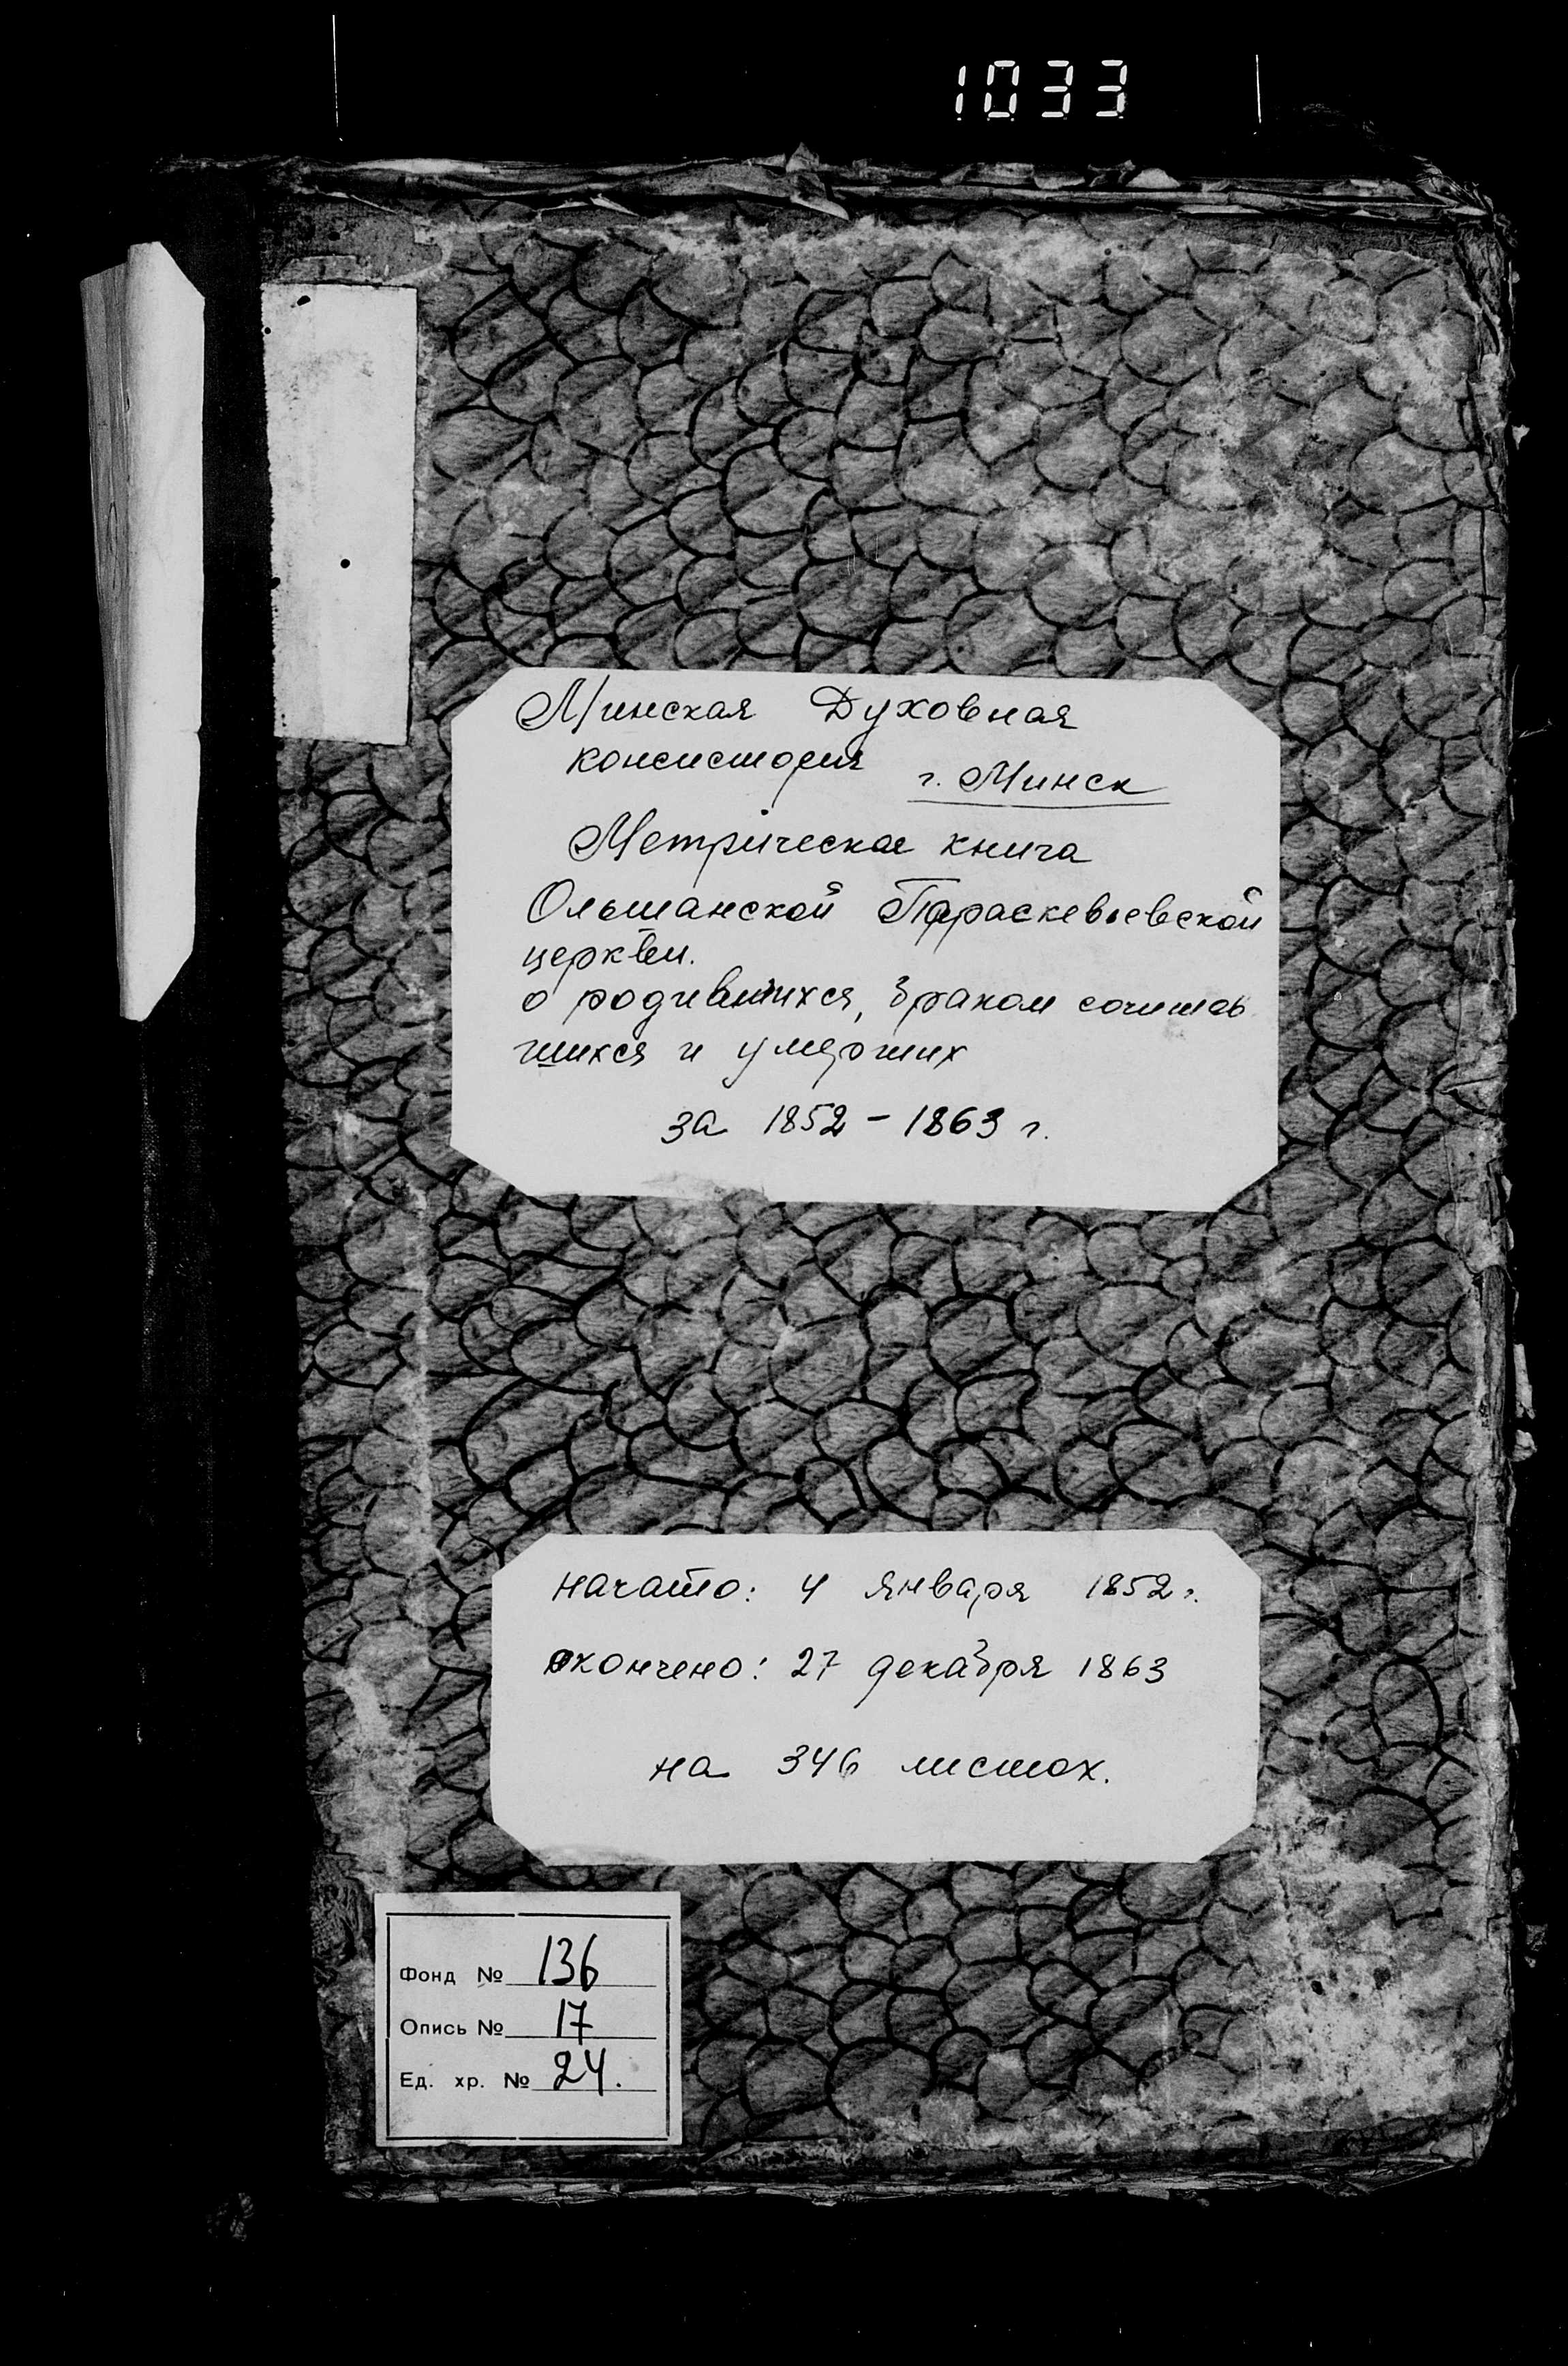 1033
Минская Духовная
консистория
г. Минск
Метрическая книга
Ольшанской Параскевьевской
церкви.
о родившихся, браком сочитав
шихся и умерших
за 1852 - 1863 г.
начато: 4 января 1852 г.
окончено: 27 декабря 1863
на 346 листах.
Фонд № 136
Опись № 17
Ед. хр. № 24.